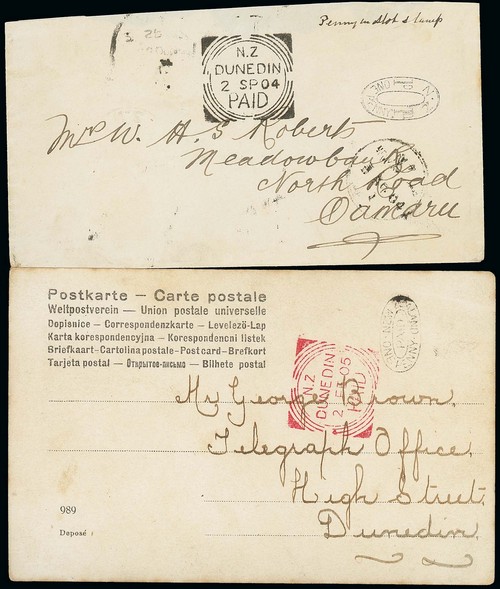 Penny in Slot Stamp
N.Z
DUNEDIN
2 SP 04
PAID
ONE
Mr W. H. S. Roberts
Meadowbank
North Road
Oamaru
Postkarte – Carte postale
Weltpostverein – Union postale universelle
Dopisnice – Correspondenzkarte – Levelező-Lap
Karta korrespondencyjna – Korespondencni listek
Briefkaart-Cartolina postale-Post card-Brefkort
Tarjeta postal – Открытое письмо – Bilhete postal
N.Z
DUNEDIN
2 FE 05
PAID
Mr George Brown.
Telegraph Office.
High Street.
Dunedin.
989
Deposé